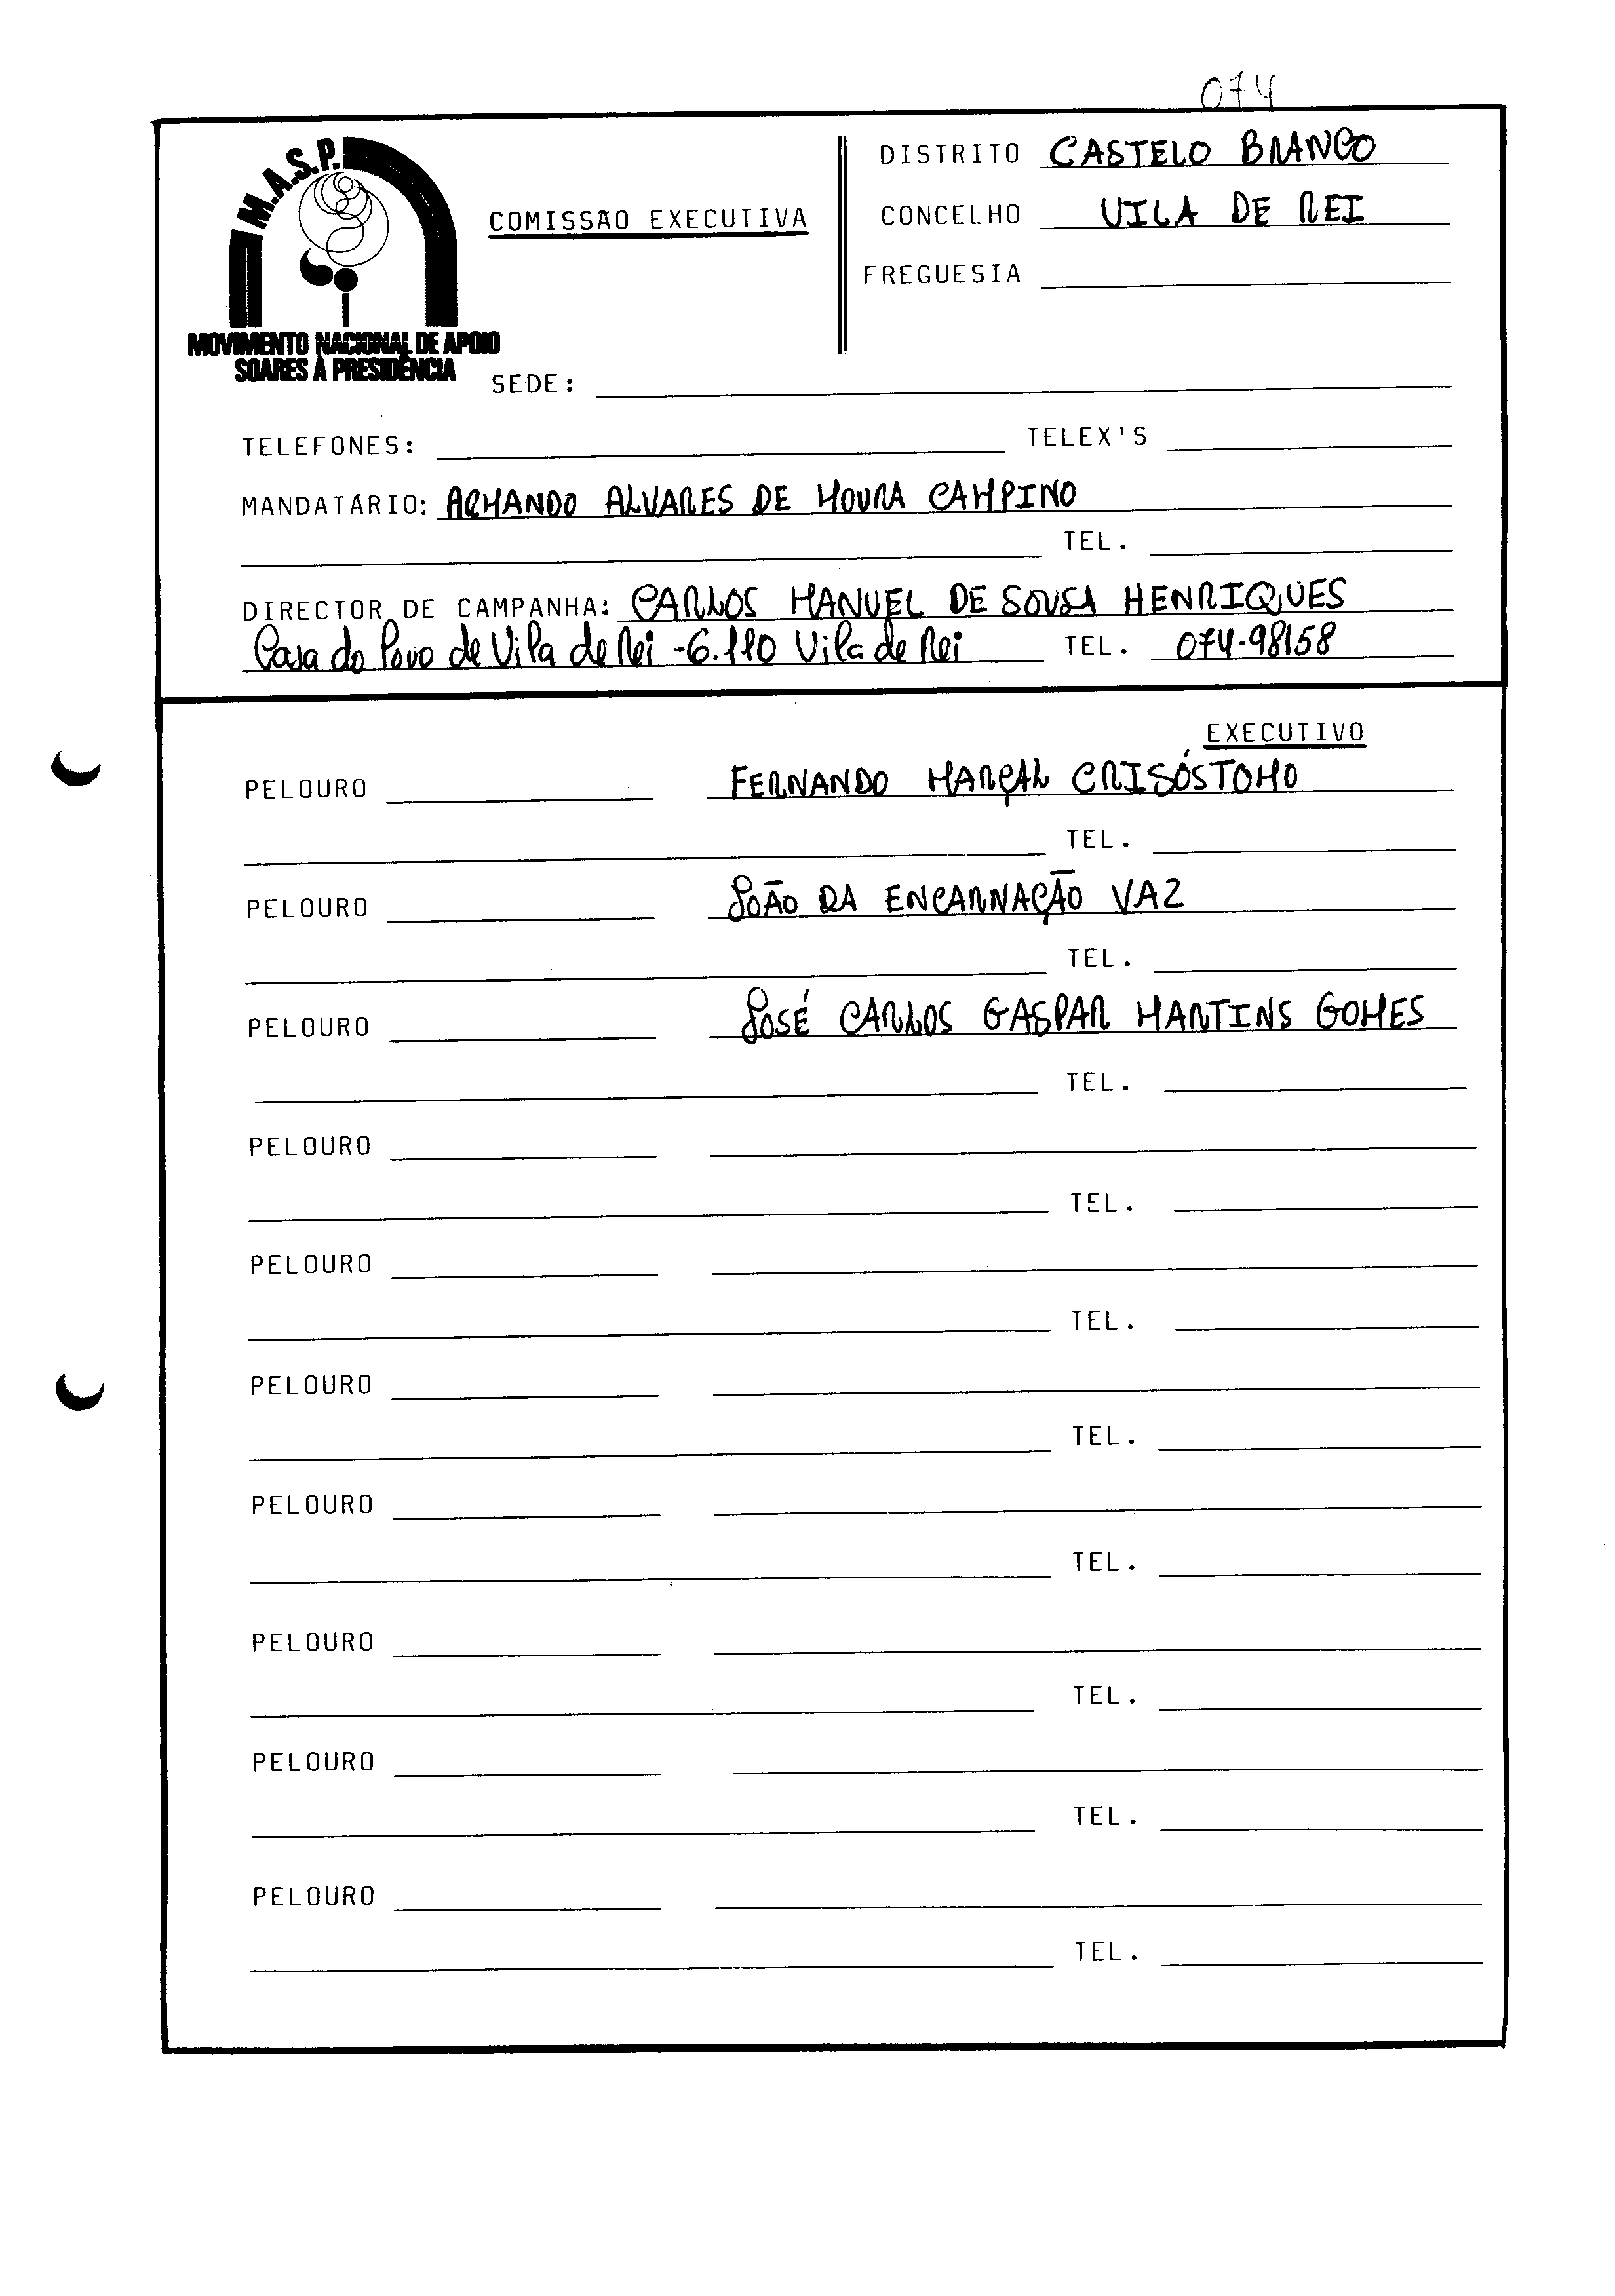 074
M.A.S.P.
MOVIMENTO NACIONAL DE APOIO
SOARES À PRESIDÊNCIA
COMISSÃO EXECUTIVA
DISTRITO CASTELO BRANCO
CONCELHO VILA DE REI
FREGUESIA
SEDE:
TELEFONES: TELEX'S
MANDATÁRIO: ARMANDO ALVARES DE MOURA CAMPINO
TEL.
DIRECTOR DE CAMPANHA: CARLOS MANUEL DE SOUSA HENRIQUES
Casa do Povo de Vila de Rei -6.110 Vila de Rei TEL. 074-98158
EXECUTIVO
PELOURO FERNANDO MARÇAL CRISÓSTOMO
TEL.
PELOURO JOÃO DA ENCARNAÇÃO VAZ
TEL.
PELOURO JOSÉ CARLOS GASPAR MARTINS GOMES
TEL.
PELOURO
TEL.
PELOURO
TEL.
PELOURO
TEL.
PELOURO
TEL.
PELOURO
TEL.
PELOURO
TEL.
PELOURO
TEL.